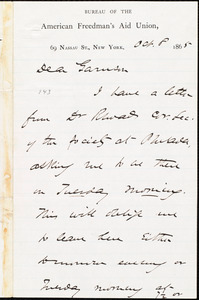 BUREAU OF THE
American Freedman's Aid Union,
69 Nassau St., New York, Oct 8 1865
Dear Garrison
143
I have a letter
from Dr Cor. Sec.
of the Society at
asking me to be there
on Tuesday morning.
This will oblige me
to leave here Either
tomorrow evening or
Tuesday morning at
7½ or